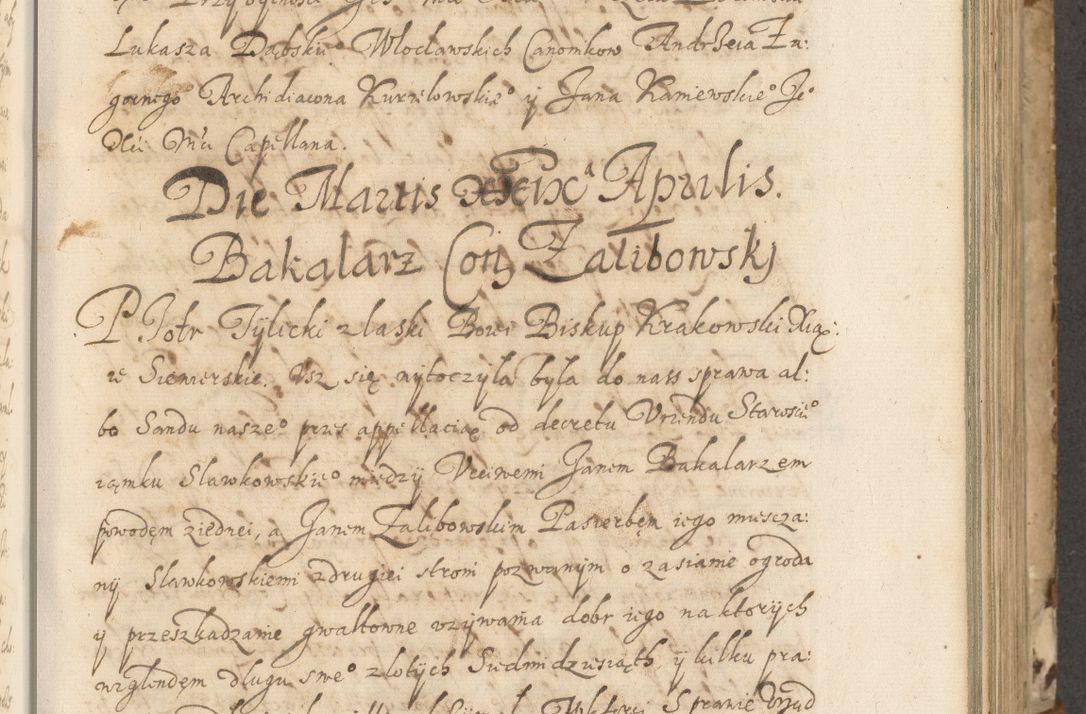 Lukasza Dąbskie° Włocławskich Canonikow Andrzeia Za:
gornego Archidiacona Kurzelowskie° y Jana Kaniewskie° Je°
Xci Mci Capellana.
Die Martis xxix^a Aprilis.
Bakalarz Con Zalibowskj
Piotr Tylicki z łaski Bożei Biskup Krakowski Xiąż:
ie Siewierskie. Isz się wytoczyła była do nass sprawa al:
bo Sandu nasze° przes appellacią od decretu Vrzendu Starosci°
zamku Sławkowskie° między Vcciwemi Janem Bakalarzem
powodęm ziednei, a Janem Zalibowskim Pasierbęm iego miescza:
ny Sławkowskiemi zdrugiei stroni pozwanym o zasianie ogroda
y przeszkadzanie gwałtowne vzywania dobr iego na ktorych
wzglendem długu swe° złotych Siedmidziesiąth y kilku pra: